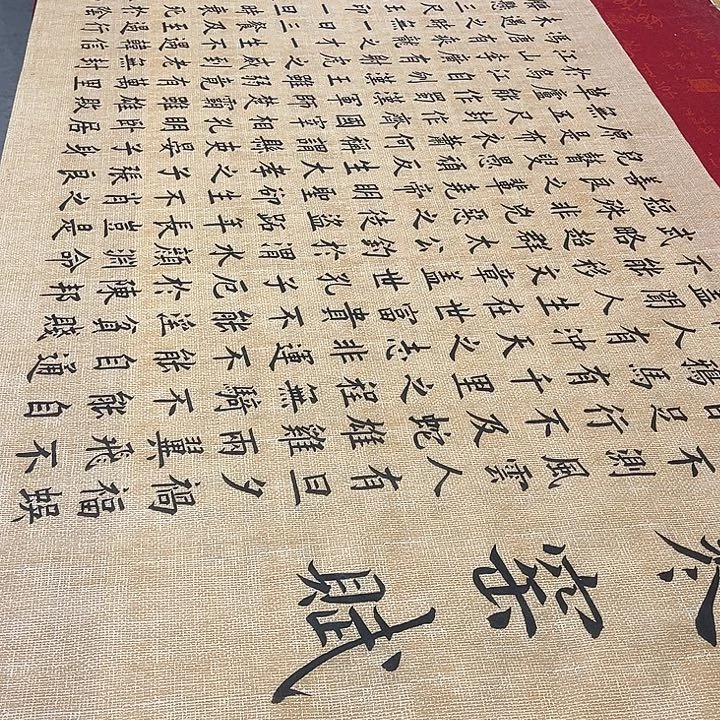 寒窑賦
不測風雲人有旦夕禍福蜈
百足行不及蛇雄雞兩翼飛不
鴉馬有千里之程無騎不能自
人有沖天之志非運不能自通
蓋聞人生在世富貴不能淫貧賤
不能移文章蓋世孔子厄於陳邦
武略超群太公釣於渭水顏淵命
短殊非兇惡之徒盜跖年長豈是
善良之輩堯帝明聖卻生不肖之
兒瞽叟愚頑反生大孝之子張良
原是布衣蕭何稱謂縣吏晏子身
無五尺封作齊國宰相孔明臥居
草廬能作蜀漢軍師楚霸雖雄敗
於烏江自刎漢王雖弱竟有萬里
江山李廣有射虎之威到老無封
馮唐有乘龍之才一生不遇韓信
未遇之時無一日三餐及至遇行
懸三尺印一旦衰死